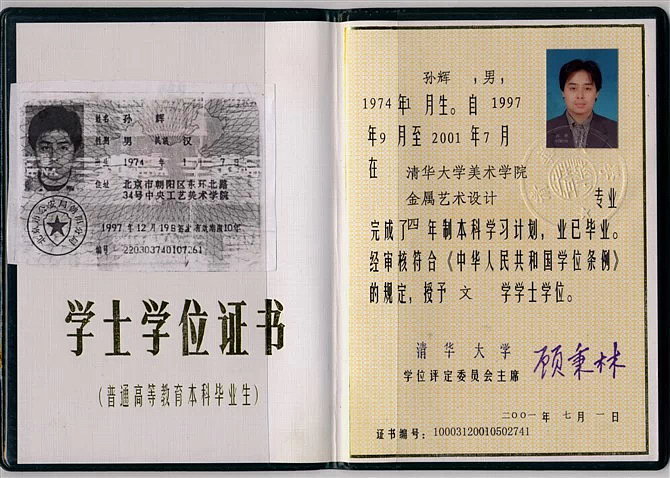 姓名 孙 辉
性别 男 民族 汉
1974 年 1 月 7 日
住址 北京市朝阳区东环北路
34号中央工艺美术学院
1997 年 12 月 19日签发 有效期限10年
编号 220303740107261
学士学位证书
(普通高等教育本科毕业生)
孙辉 ,男,
1974年1 月生。自 1997
年9 月至 2001 年 7 月
在 清华大学美术学院
金属艺术设计 专业
完成了四 年制本科学习计划,业已毕业。
经审核符合《中华人民共和国学位条例》
的规定,授予 文 学学士学位。
清 华 大 学
学位评定委员会主席 顾秉林
二○○一年 七 月 一 日
证书编号:10003120010502741